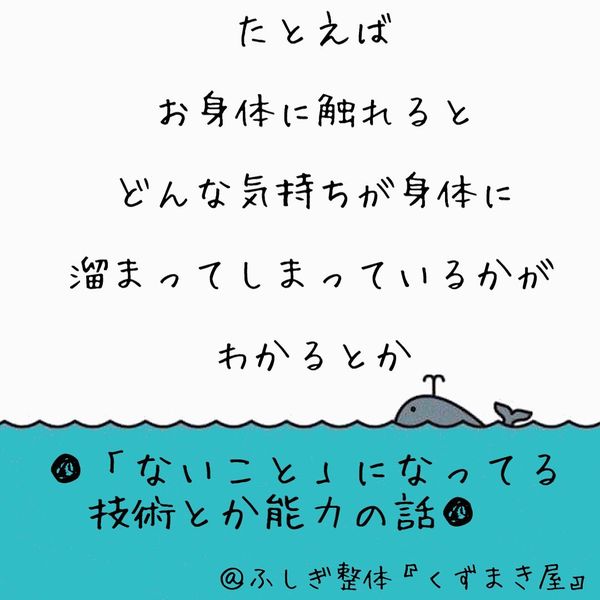 たとえば
お身体に触れると
どんな気持ちが身体に
溜まってしまっているかが
わかるとか
「ないこと」になってる
技術とか能力の話
@ふしぎ整体『くずまき屋』